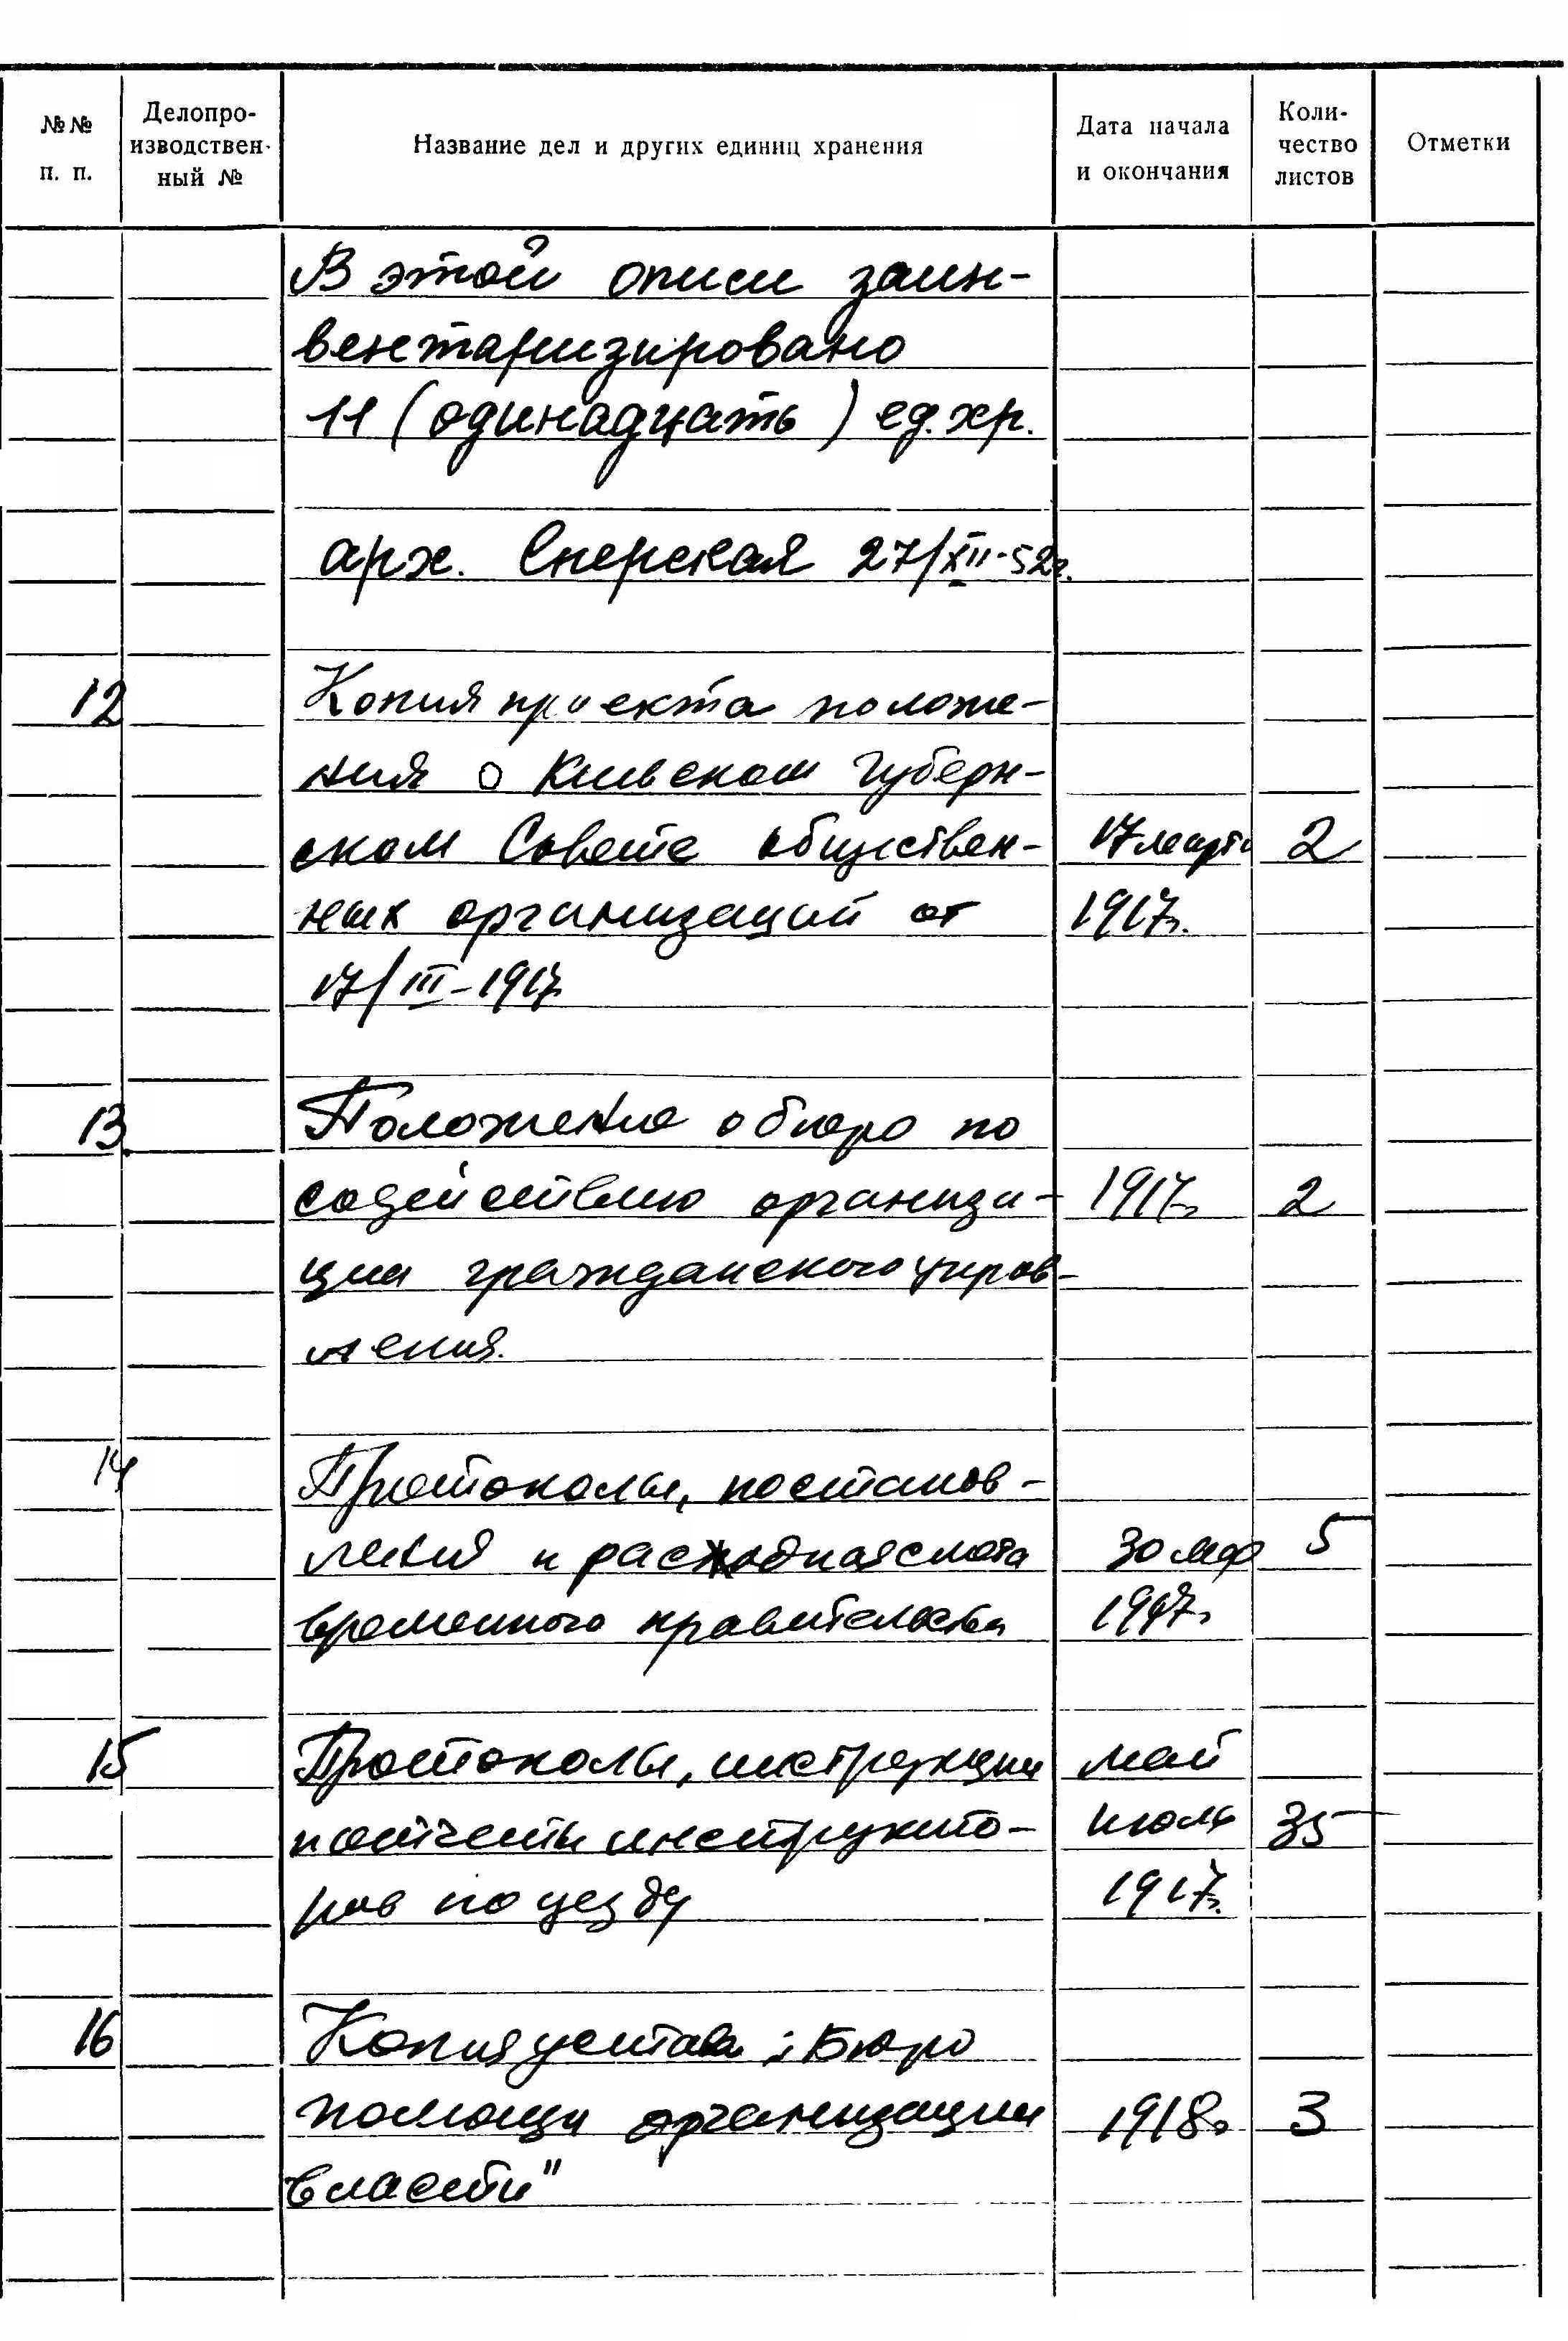 №№ п. п.
Делопро-
изводствен-
ный №
Название дел и других единиц хранения
Дата начала
и окончания
Коли-
чество
листов
Отметки
В этой описи заин-
вентаризировано
11 (одинадцать) ед. хр.
арх. Сперская 27/XII-52г.
12 Копия проекта положе-
ния о Киевском Губерн-
ском Совете обществен- 17 марта 2
ных организаций от 1917г.
17/III-1917
13. Положение о бюро по
содействию организа- 1917г. 2
ции гражданского управ-
ления.
14 Протоколы, постанов-
ления и расходная смета 30 мар 5
временного правительства 1917г.
15 Протоколы, инструкции май
и отчеты инструкто- июль 35
ров по уезду 1917г.
16 Копия устава „Бюро
помощи организации 1918г 3
власти"